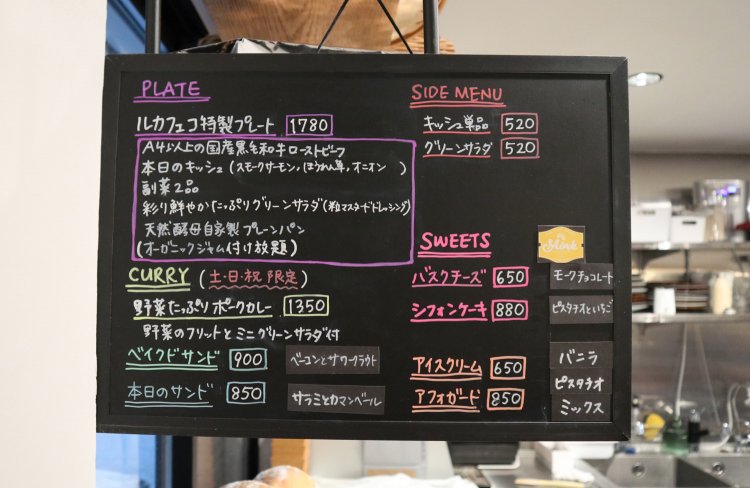 PLATE
ルカフェコ特製プレート 1780
A4以上の国産黒毛和牛ローストビーフ
本日のキッシュ(スモークサーモン,ほうれん草,オニオン)
副菜2品
彩り鮮やかたっぷりグリーンサラダ(粒マスタードドレッシング)
天然酵母自家製プレーンパン
(オーガニックジャム付け放題)
CURRY (土・日・祝 限定)
野菜たっぷりポークカレー 1350
野菜のフリットとミニグリーンサラダ付
ベイクドサンド 900 ベーコンとサワークラウト
本日のサンド 850 サラミとカマンベール
SIDE MENU
キッシュ単品 520
グリーンサラダ 520
SWEETS
バスクチーズ 650 モークチョコレート
シフォンケーキ 880 ピスタチオといちご
アイスクリーム 650 バニラ
ピスタチオ
アフォガード 850 ミックス